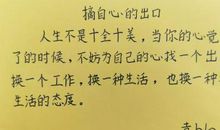 摘自心的出口
人生不是十全十美，当你的心觉
了的时候，不妨为自己的心找一个出
换一个工作，换一种生活，也换一种
生活的态度。